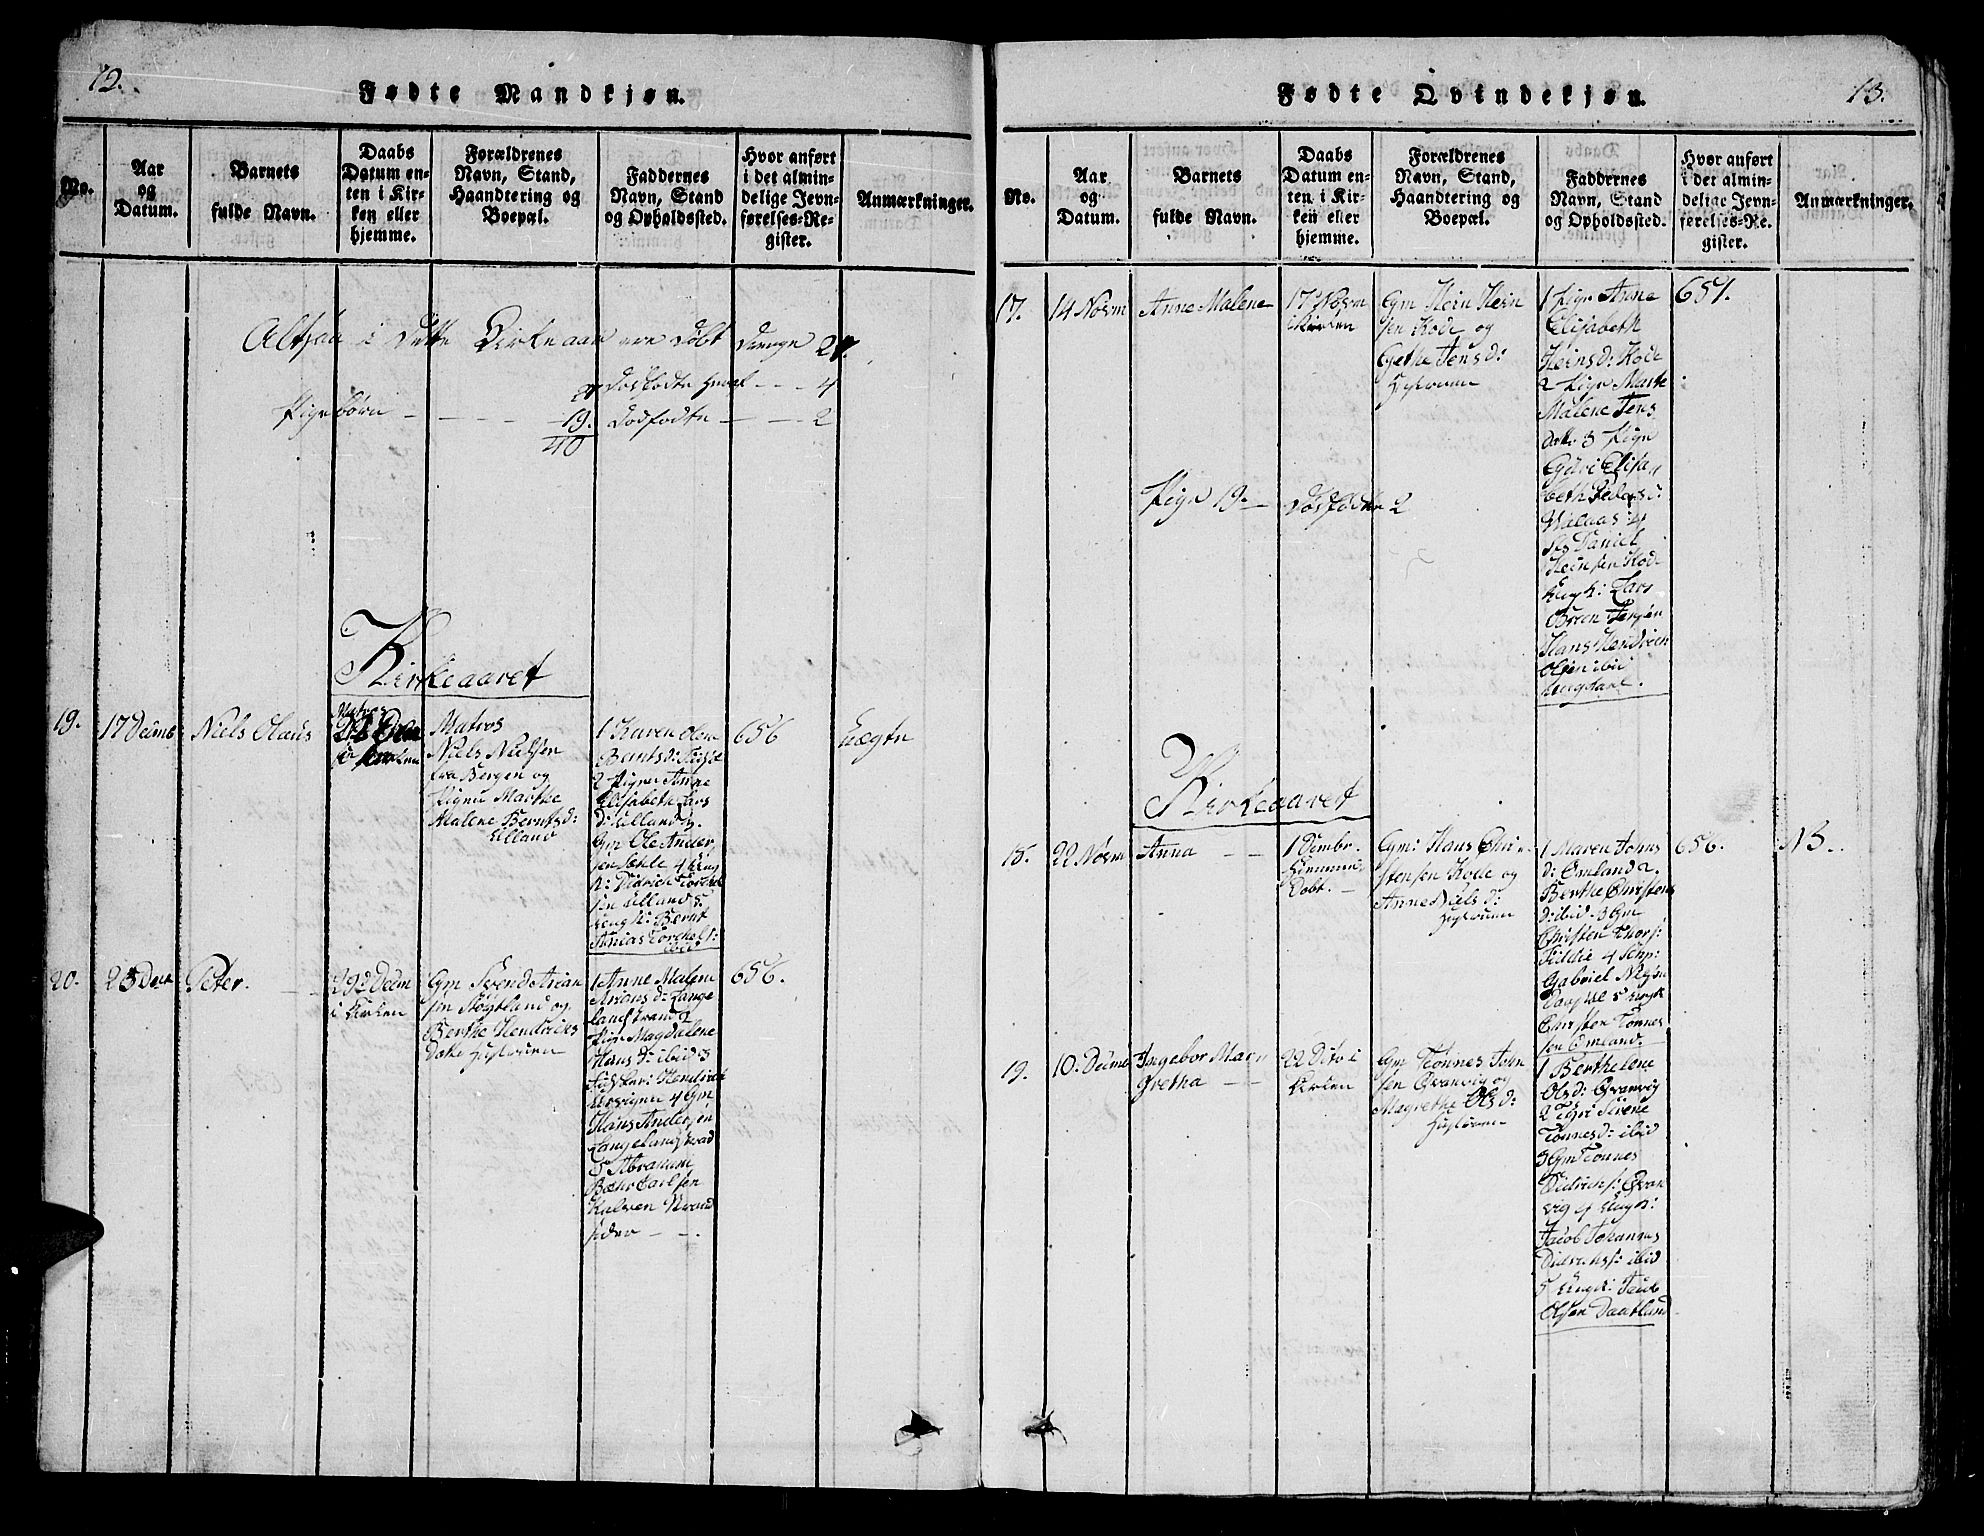 12.
Fødte Mandkjøn.
No.
Aar
og
Datum.
Barnets
fulde Navn.
Daabs
Datum en-
ten i Kir-
ken eller
hjemme.
Forældrenes
Navn, Stand,
Haandtering og
Boepæl.
Faddernes
Navn, Stand
og Opholdssted.
Hvor anført
i det almin-
delige Jevn-
førelses-Re-
gister.
Anmærkninger.
Altsaa i dette Kirkeaar ere døbt Drenge 21.
Dødfødte - - - 4
Pigebørn - - - 19. Dødfødte - - - 2
40
Kirkeaaret
19.
17 Decmb
Niels Olaus
Matros
Niels Nielsen
fra Bergen og
Pigen Marthe
Malene Berntsd:
Eilland
1 Karen Olene
Berntsd:
2 Pigen Anne
Elisabeth Lars
d: Eilland 3.
Gm Ole Ander
sen 4 Ung
k: Didrich Torchel
sen Eilland 5
Ungk: Bernt
Anias Torchels:
ibid:
656
Uægte
20.
Peter.
29 Decm
i Kirken
Gm Svend Arian
sen Støgtland og
Berthe Hendrichs
datter Hustruen
1 Anne Malene
Arians d: Lange
landstrand 2
Pige Magdalene
Hans d: ibid: 3
Hendrich
4 Gm
Hans Andersen
Langelandstrad
5 Abraham
Carlsen
656.
13.
Fødte Qvindekjøn.
No.
Aar
og
Datum.
Barnets
fulde Navn.
Daabs
Datum en-
ten i Kir-
ken eller
hjemme.
Forældrenes
Navn, Stand,
Haandtering og
Boepæl.
Faddernes
Navn, Stand
og Opholdssted.
Hvor anført
i det almin-
delige Jevn-
førelses-Re-
gister.
Anmærkninger.
17.
14 Novm
Anne Malene
17 Novm
i Kirken
Gm Hein Hein
sen Kode og
Gethe Jensd:
Hustruen
1 Pige Anne
Elisabeth
Heinsd: Kode
2 Pige Marte
Malene Jens
datter 3 Pige
Guri Elisa
beth Pedersd:
4
Daniel
Heinsen Kode
Ungk: Lars
Hans Hendrich
Olsen ibid
651.
Pige 19. - Dødfødte 2
Kirkeaaret
18.
22 Novm
Anna - -
1 Decmbr.
Hiemme
døbt. -
Gm: Hans Chri
stensen Kode og
Anne Niels d:
Hustruen
1 Maren Johns
d: Omland 2.
Berthe Christens
d: ibid 3 Gm
Christen Thors:
4
Gabriel
5 Ungk
Christen Tønnes
sen Omland.
656.
N3.
19.
10. Decmb
Ingebor Mar
gretha - -
22 Dito i
Kirken
Gm Tønnes John
sen Qvanvig og
Magrethe Olsd:
Hustruen
1 Berthe Lene
Olsd: Qvanvig
2 Pige Sirene
Tønnesd: ibid
3 Gm Tønnes
Didrichs: Qvan
vig 4 Ungk:
Jacob Johannes
Didrichs: ibid
5 Ungk: Jacob
Olsen Daatland